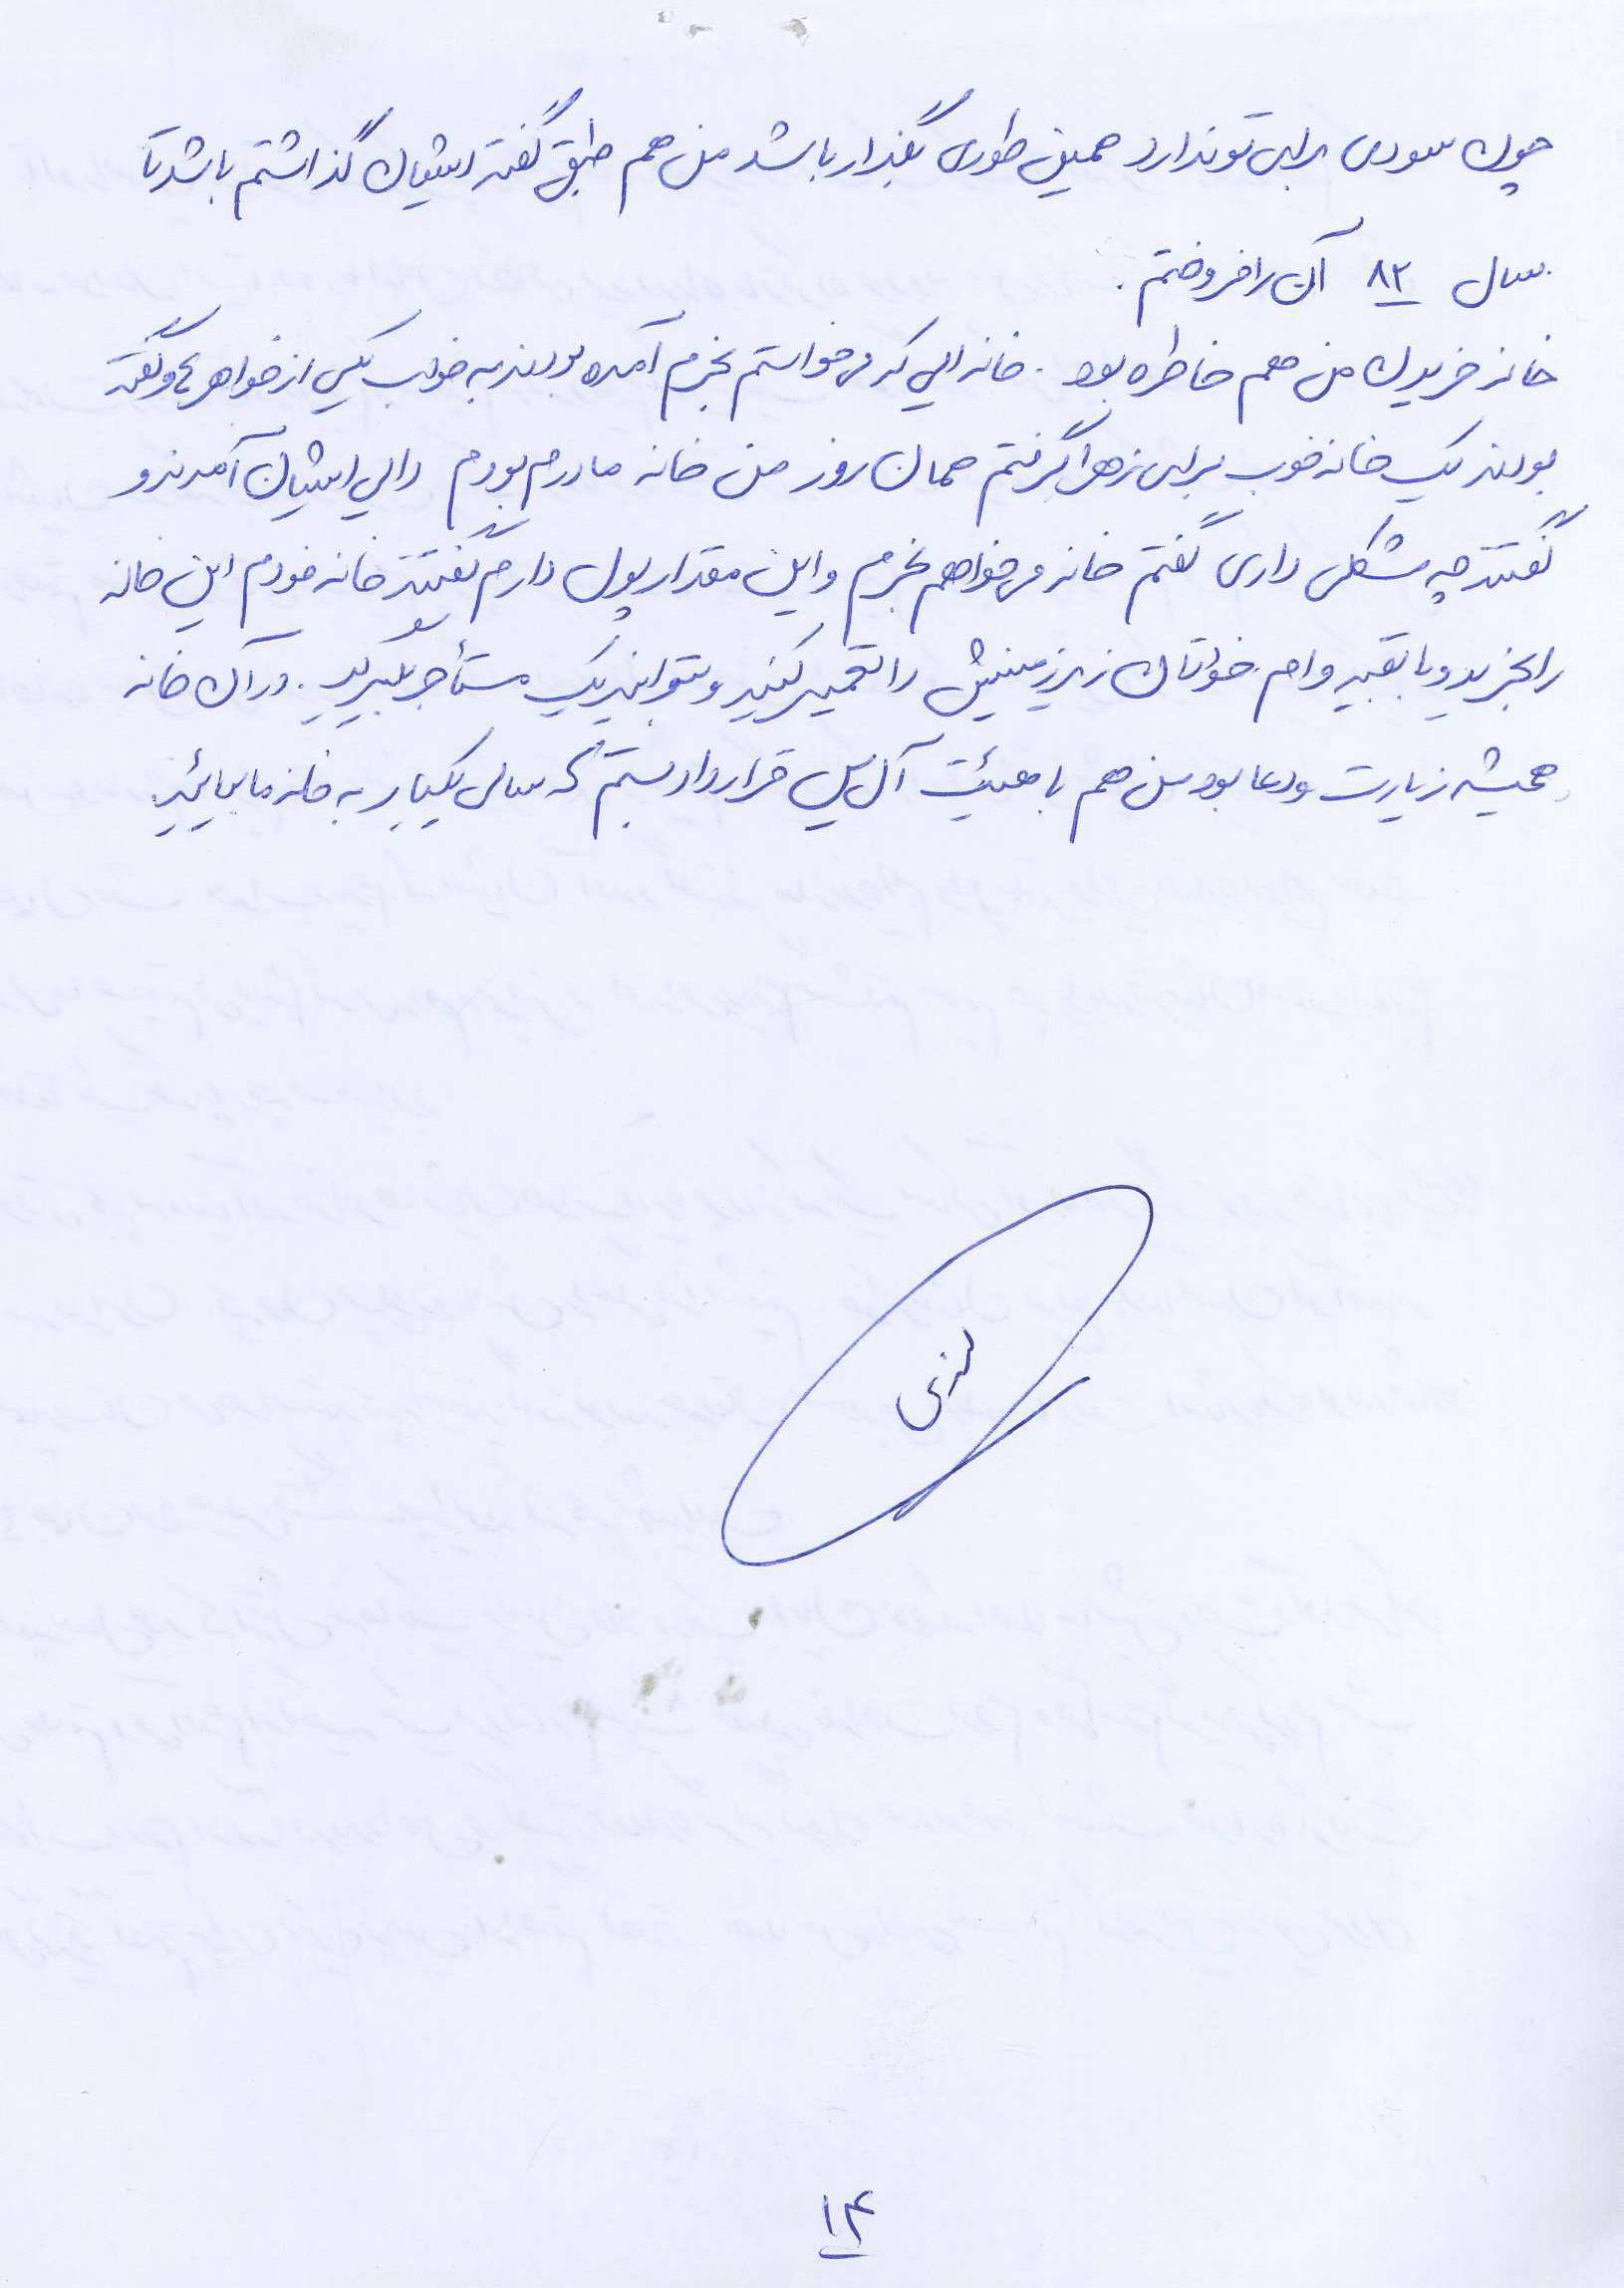 چون سودی برای تو ندارد همین طوری بگذار باشد من هم طبق گفته ایشان گذاشتم باشد تا
سال ۸۲ آن را فروختم.
خانه خریدن من هم خاطره بود. خانه ایی که می خواستم بخرم آمده بودند به خواب یکی از خواهر و گفته
بودند یک خانه خوب برای زهرا گرفتم همان روز من خانه مادرم بودم دایی ایشان آمدند و
گفتند چه مشکلی داری گفتم خانه می خواهم بخرم و این مقدار پول دارم گفتند خانه خودم این خانه
را بخرید و با بقیه وام خودتان زیرزمینش را تعمیر کنید و بتوانید یک مستأجر بگیرید. در آن خانه
همیشه زیارت و دعا بود من هم با هیئت آل یس قرارداد بستم که سالی یکبار به خانه ما بیائید.
۱۴